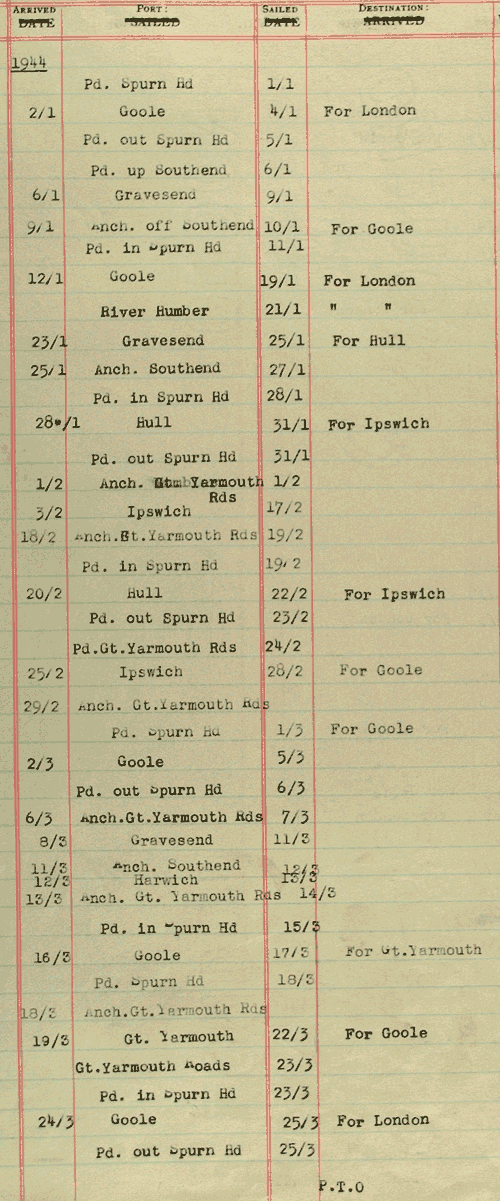 ARRIVED PORT: SAILED DESTINATION:
DATE SAILED DATE ARRIVED
1944
Pd. Spurn Hd 1/1
2/1 Goole 4/1 For London
Pd. out Spurn Hd 5/1
Pd. up Southend 6/1
6/1 Gravesend 9/1
9/1 Anch. off Southend 10/1 For Goole
Pd. in Spurn Hd 11/1
12/1 Goole 19/1 For London
River Humber 21/1 " "
23/1 Gravesend 25/1 For Hull
25/1 Anch. Southend 27/1
Pd. in Spurn Hd 28/1
28/1 Hull 31/1 For Ipswich
Pd. out Spurn Hd 31/1
1/2 Anch. Gt. Yarmouth 1/2
Rds
3/2 Ipswich 17/2
18/2 Anch.Gt.Yarmouth Rds 19/2
Pd. in Spurn Hd 19/2
20/2 Hull 22/2 For Ipswich
Pd. out Spurn Hd 23/2
Pd.Gt.Yarmouth Rds 24/2
25/2 Ipswich 28/2 For Goole
29/2 Anch. Gt.Yarmouth Rds
Pd. Spurn Hd 1/3 For Goole
2/3 Goole 5/3
Pd. out Spurn Hd 6/3
6/3 Anch.Gt.Yarmouth Rds 7/3
8/3 Gravesend 11/3
11/3 Anch. Southend 12/3
12/3 Harwich 13/3
13/3 Anch. Gt. Yarmouth Rds 14/3
Pd. in Spurn Hd 15/3
16/3 Goole 17/3 For Gt.Yarmouth
Pd. Spurn Hd 18/3
18/3 Anch.Gt.Yarmouth Rds
19/3 Gt. Yarmouth 22/3 For Goole
Gt.Yarmouth Roads 23/3
Pd. in Spurn Hd 23/3
24/3 Goole 25/3 For London
Pd. out Spurn Hd 25/3
P.T.O